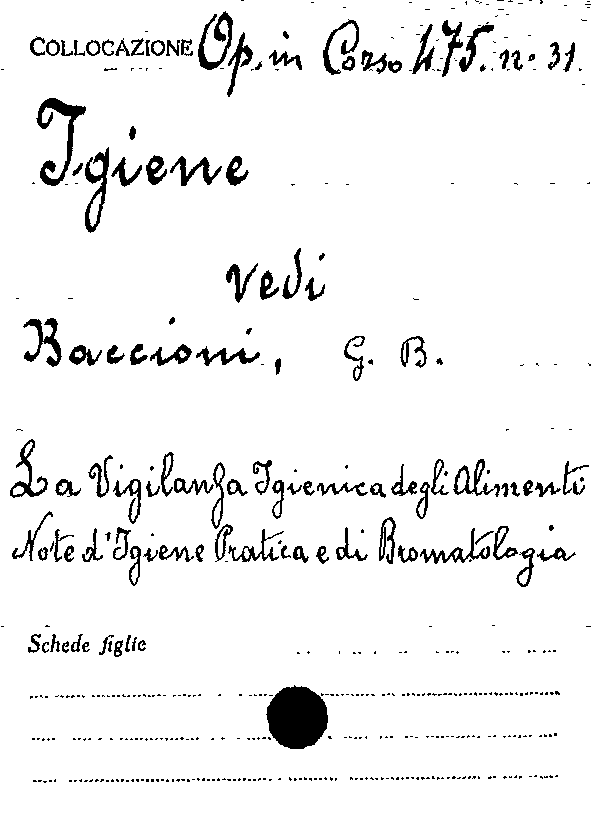 COLLOCAZIONE Op. in Corso 475. n. 31
Igiene
vedi
Baccioni, G. B.
La Vigilanza Igienica degli Alimenti
Note d'Igiene Pratica e di Bromatologia
Schede figlie